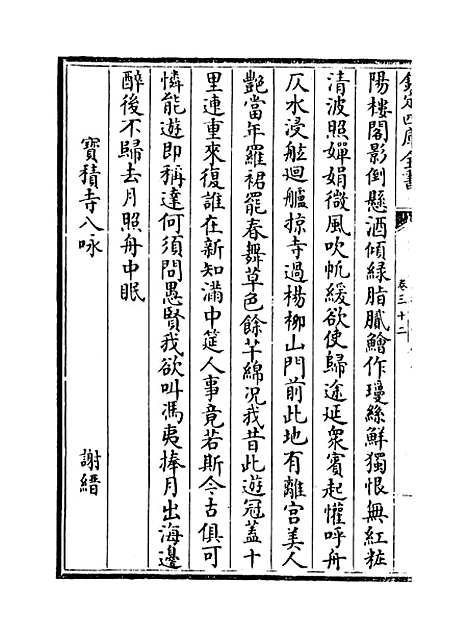 欽定四庫全書
卷三十二
陽樓閣影倒懸酒傾緑脂膩鱠作瓊絲鮮獨恨無紅粧
清波照嬋娟微風吹帆緩欲使歸途延衆賓起懽呼舟
仄水浸舷迴艫掠寺過楊柳山門前此地有離宫美人
艷當年羅裙罷春舞草色餘芊綿況我昔此遊冠蓋十
里連重來復誰在新知滿中筵人事竟若斯今古俱可
憐能遊即稱達何須問愚賢我欲叫馮夷捧月出海邊
醉後不歸去月照舟中眠
寳積寺八咏
謝縉